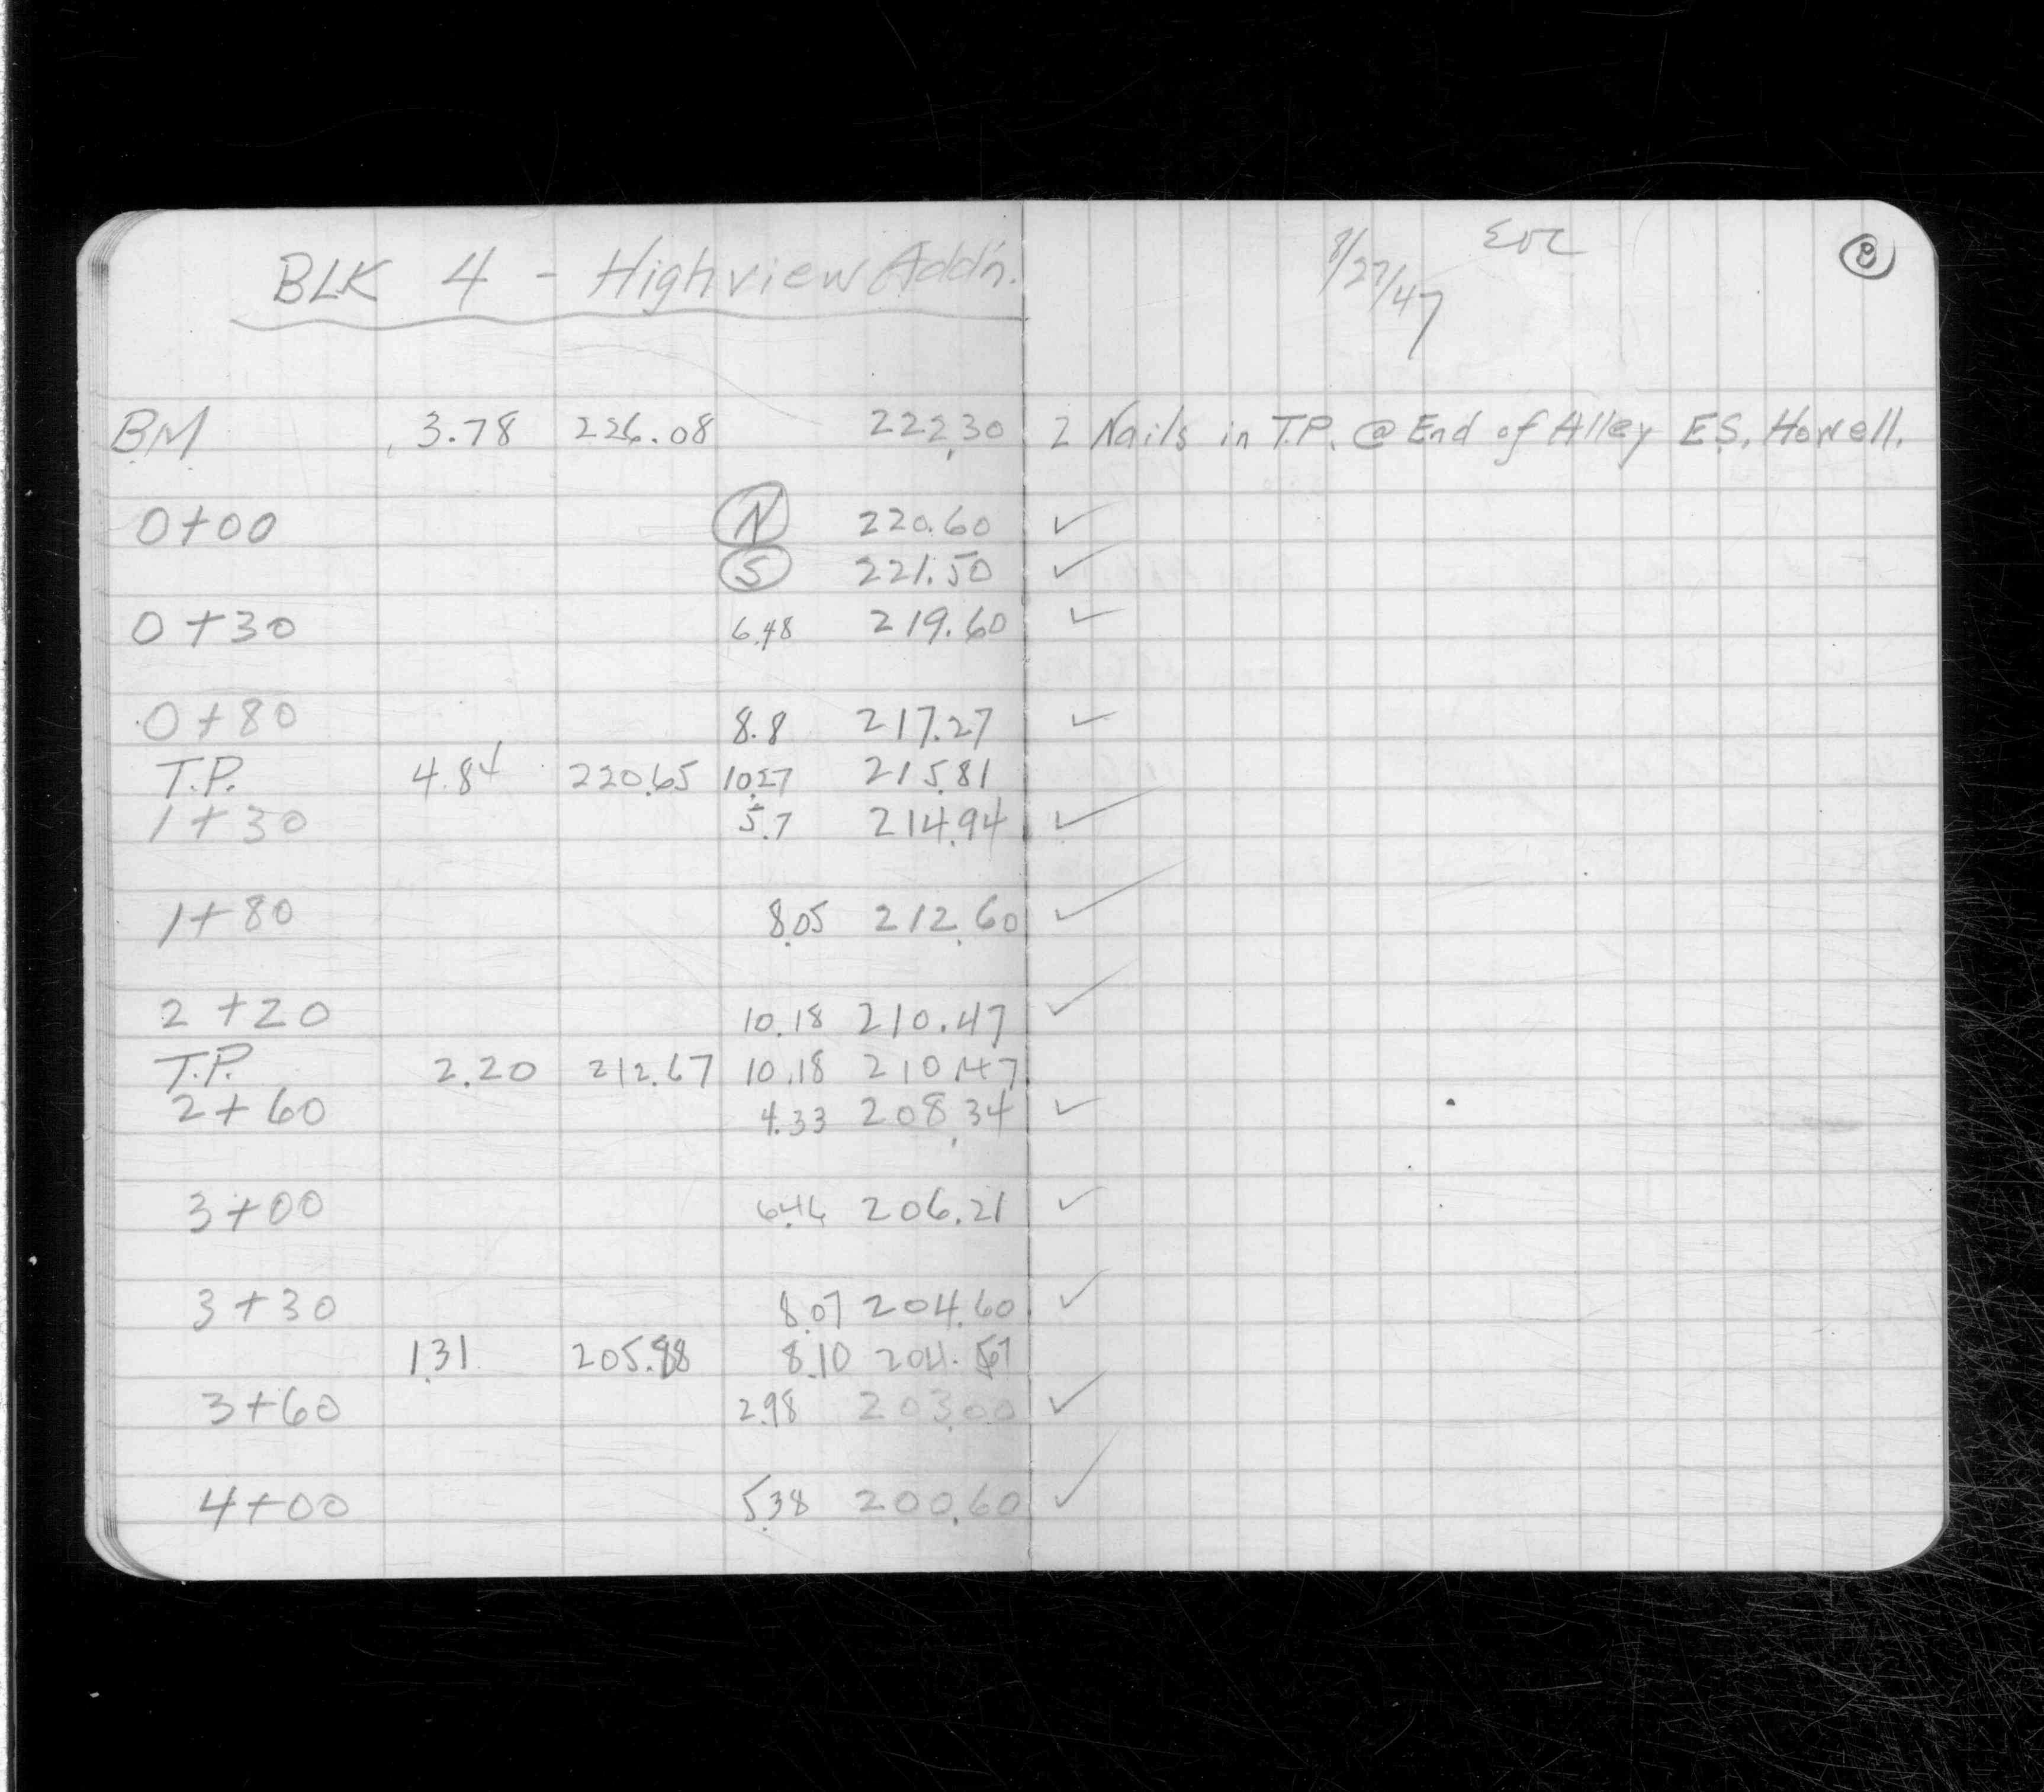 BLK 4 - Highview Add'n.
8/27/47
8
BM 3.78 226.08 222.30 2 Nails in T.P. @ End of Alley E.S. Howell.
0+00 N 220.60 ✓
S 221.50 ✓
0+30 6.48 219.60 ✓
0+80 8.8 217.27 ✓
T.P. 4.84 220.65 10.27 215.81
1+30 5.7 214.94 ✓
1+80 8.05 212.60 ✓
2+20 10.18 210.47 ✓
T.P. 2.20 212.67 10.18 210.47
2+60 4.33 208.34 ✓
3+00 6.46 206.21 ✓
3+30 8.07 204.60 ✓
1.31 205.88 8.10 204.57
3+60 2.98 203.00 ✓
4+00 5.38 200.60 ✓